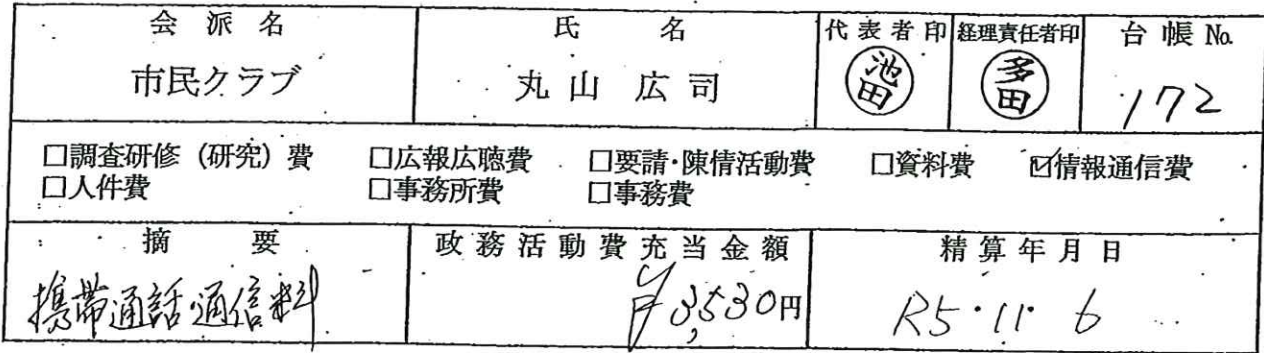 会派名 氏名 代表者印 経理責任者印 台帳 No.
市民クラブ 丸山 広司 池田 多田 172
□調査研修(研究)費 □広報広聴費 □要請・陳情活動費 □資料費 ☑情報通信費
□人件費 □事務所費 □事務費
摘要 政務活動費充当金額 精算年月日
携帯通話通信料 ¥3,530円 R5・11・6